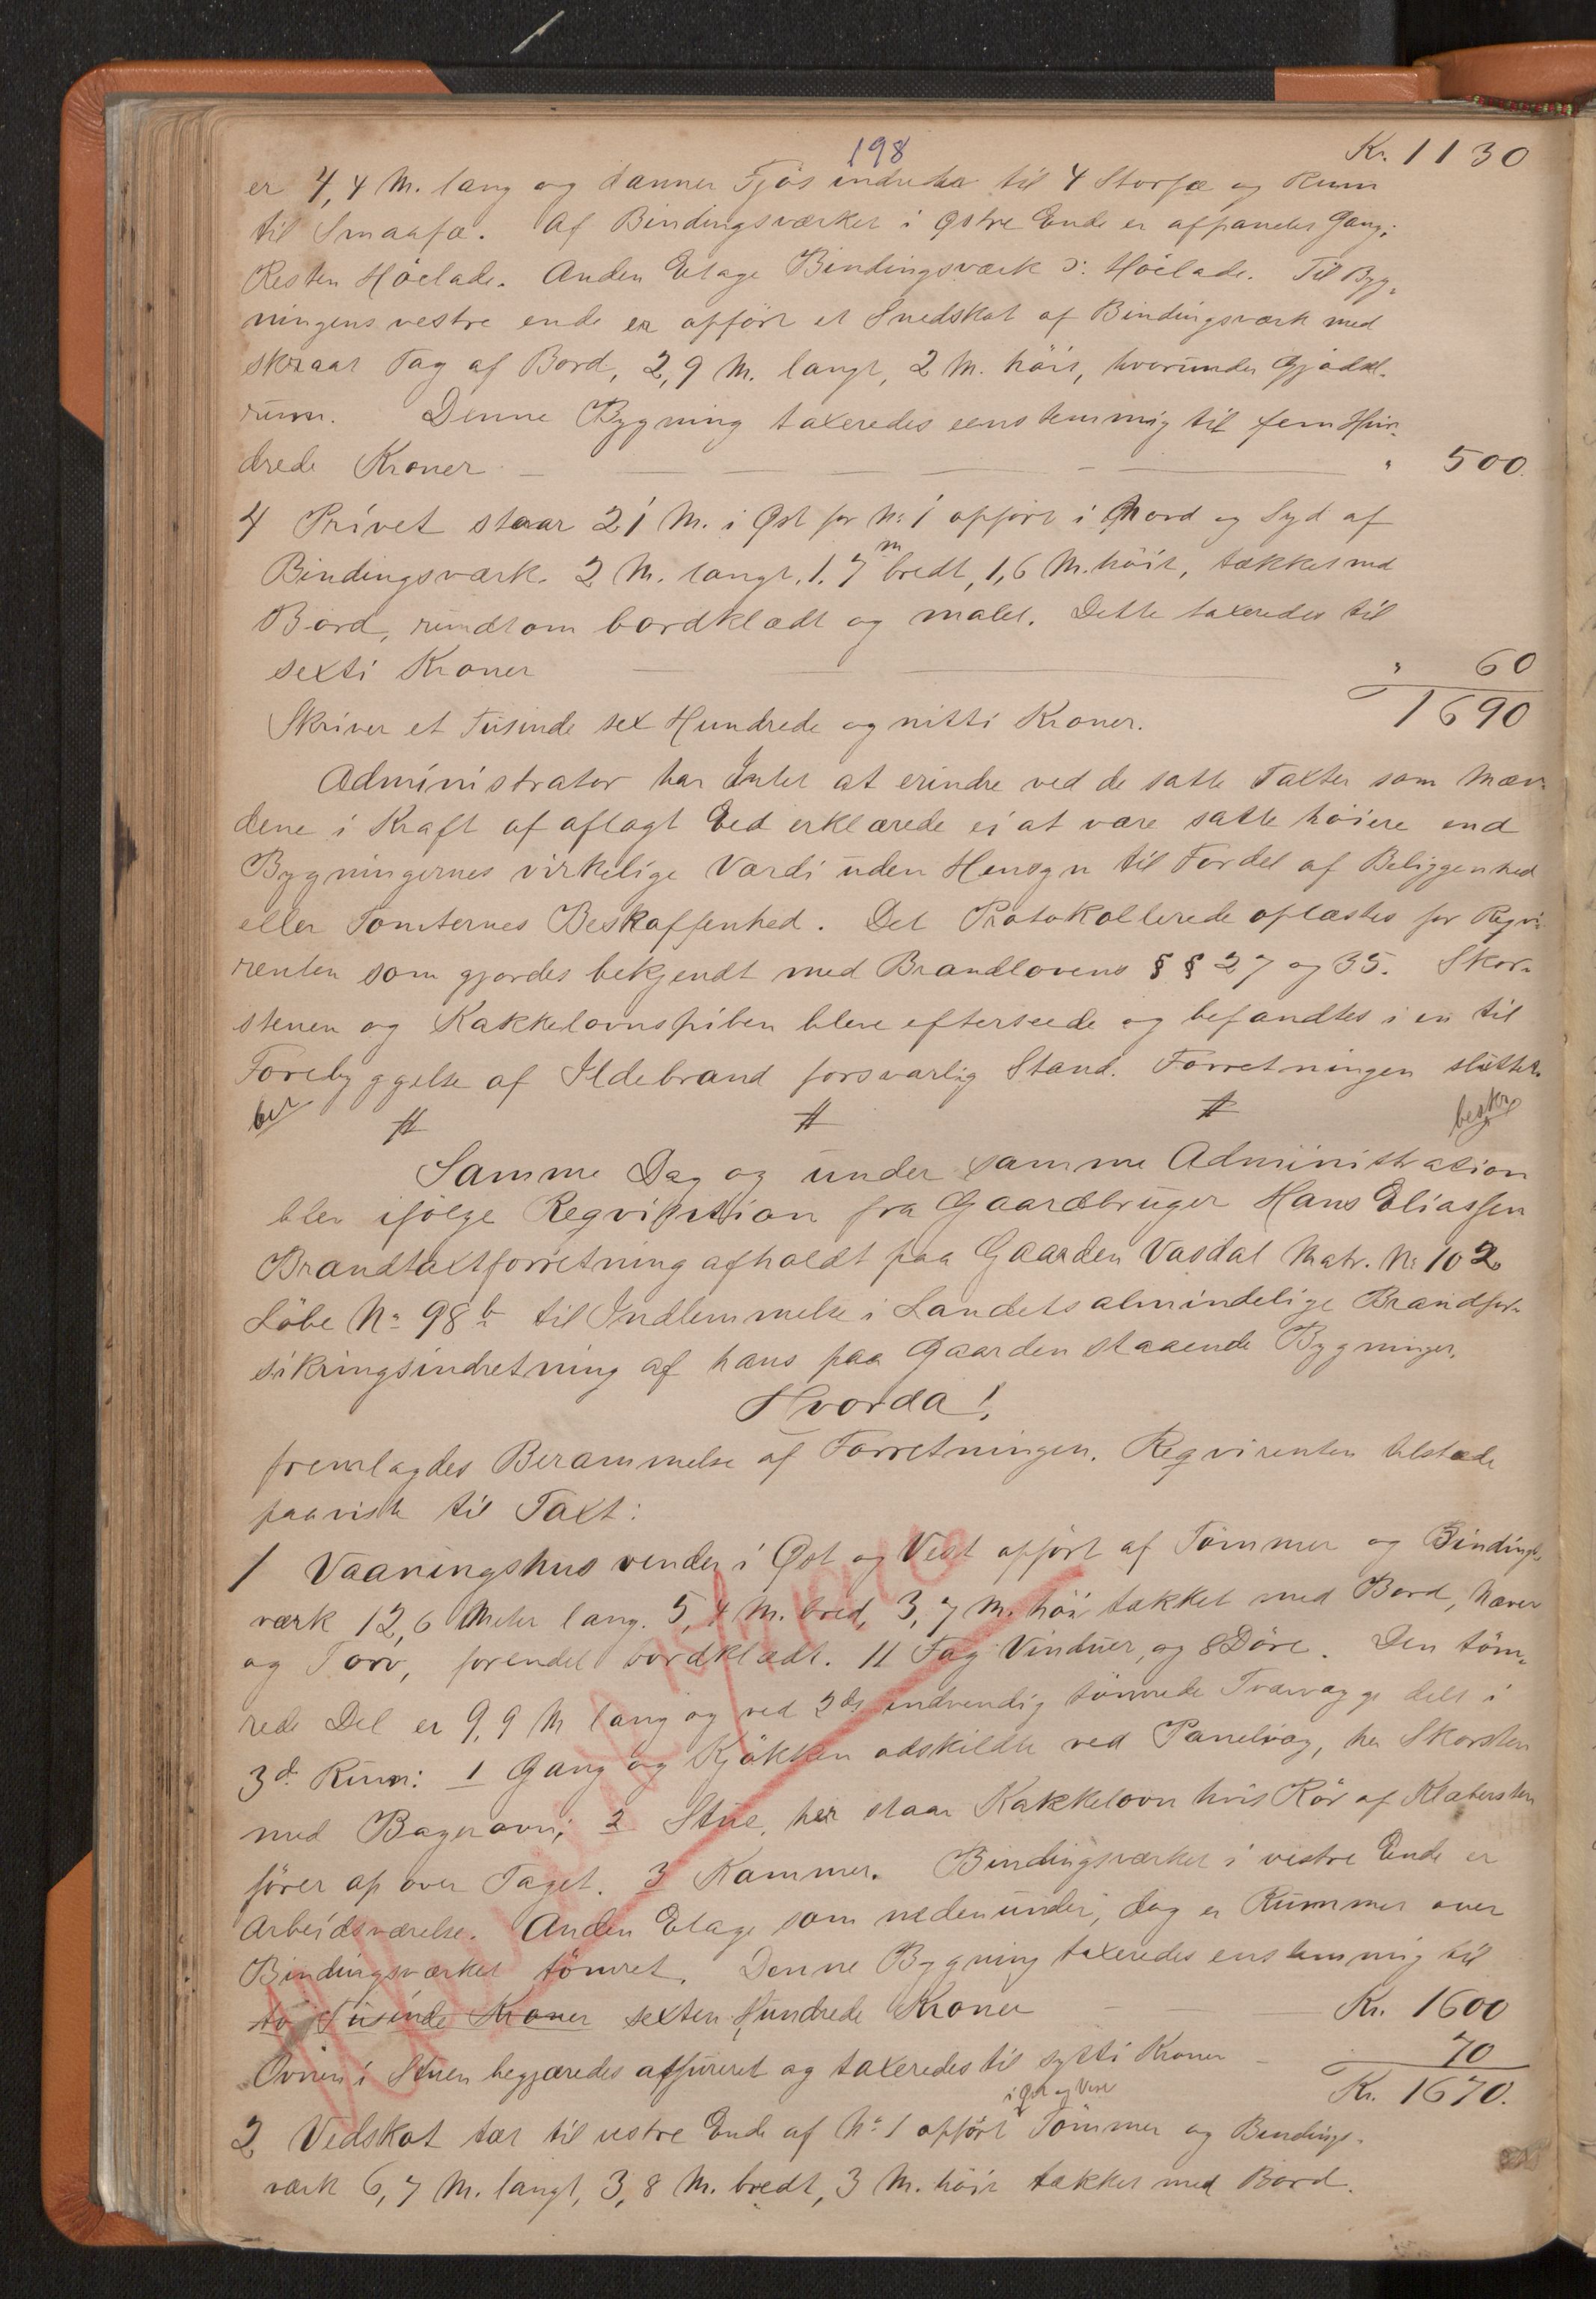 198
Kr. 1130
er 4,4 M. lang og danner Fjös indredet til 4 Storfæ og Rum
til Smaafæ. Af Bindingsværket i Østre Ende er afpanelet Gang;
Resten Höelade. Anden Etage Bindingsværk o: Höelade. Til Byg-
ningens vestre ende er opfört et Snedskot af Bindingsværk med
skraat Tag af Bord, 2,9 M. langt, 2 M. höit, hvorunder Gjödsel-
rum. Denne Bygning taxeredes eenstemmig til fem Hun-
drede Kroner — " 500.
4 Privet staar 21 M. i Øst for No 1 opfört i Nord og Syd af
Bindingsværk. 2 M. langt, 1.7 m bredt, 1,6 M. höit, tækket med
Bord, rundtom bordklædt og malet. Dette taxeredes til
sexti Kroner — " 60
1690
Skriver et Tusinde sex Hundrede og nitti Kroner.
Administrator har Intet at erindre ved de satte Taxter som Mæn-
dene i Kraft af aflagt Eed erklærede ei at være satte höiere end
Bygningernes virkelige Værdi uden Hensyn til Fordel af Beliggenhed
eller Tomternes Beskaffenhed. Det Protokollerede oplæstes for Reqvi-
renten som gjordes bekjendt med Brandlovens §§ 27 og 35. Skor-
stenen og Kakkelovnspiben bleve efterseede og befandtes i en til
Forebyggelse af Ildebrand forsvarlig Stand. Forretningen sluttet.
beskr
Samme Dag og under samme Administration
blev ifölge Reqvisition fra Gaardbruger Hans Eliassen
Brandtaxtforretning afholdt paa Gaarden Vasdal Matr. No 102
Löbe No 98 b til Indlemmelse i Landets almindelige Brandfor-
sikringsindretning af hans paa Gaarden staaende Bygninger.
Hvorda!
fremlagdes Berammelse af Forretningen. Reqvirenten tilstæde
paaviste til Taxt:
1 Vaaningshus vender i Øst og Vest opfört af Tömmer og Bindings-
værk 12,6 Meter lang. 5,4 M. bred, 3,7 M. höi tækket med Bord, Næver
og Torv, forendel bordklædt. 11 Fag Vinduer, og 8 Döre. Den töm-
rede Del er 9,9 M lang og ved 2de indvendig tömrede Tværvægge delt i
3de Rum: 1 Gang og Kjökken adskildte ved Panelvæg, her Skorsten
med Bagerovn; 2 Stue, her staar Kakkelovn hvis Rör af Klæbersten
förer op over Taget. 3 Kammer. Bindingsværket i vestre Ende er
Arbeidsværelse. Anden Etage som nedenunder, dog er Rummet over
Bindingsværket tömret. Denne Bygning taxeredes enstemmig til
to Tusinde Kroner sexten Hundrede Kroner — Kr. 1600
Ovnen i Stuen begjæredes assureret og taxeredes til sytti Kroner — 70
Kr. 1670.
i Øst og Vest
2 Vedskot tæt til vestre Ende af No 1 opfört Tömmer og Bindings-
værk 6,7 M. langt, 3,8 M. bredt, 3 M. höit tækket med Bord.